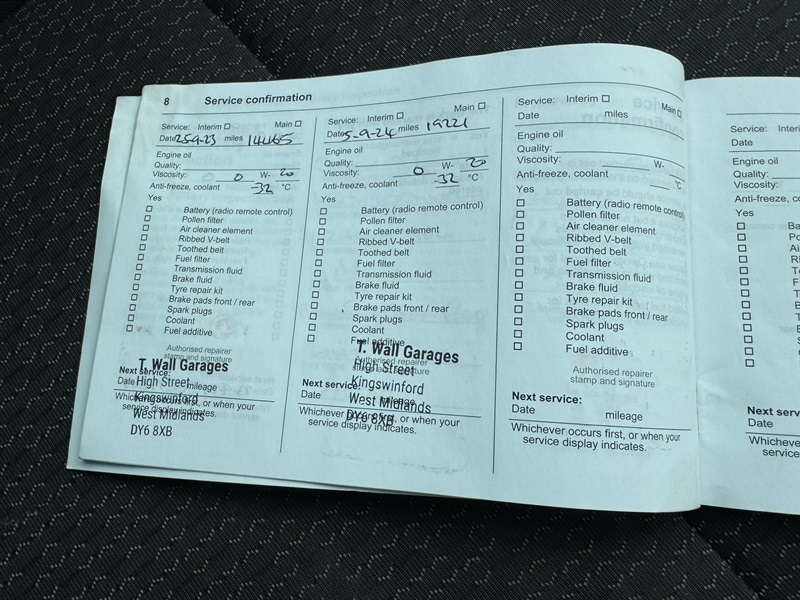 8 Service confirmation
Service: Interim ☐ Main ☐
Date 25-9-23 miles 14465
Engine oil
Quality:
Viscosity: 0 W- 20
Anti-freeze, coolant -32 °C
Yes
☐ Battery (radio remote control)
☐ Pollen filter
☐ Air cleaner element
☐ Ribbed V-belt
☐ Toothed belt
☐ Fuel filter
☐ Transmission fluid
☐ Brake fluid
☐ Tyre repair kit
☐ Brake pads front / rear
☐ Spark plugs
☐ Coolant
☐ Fuel additive
Authorised repairer
stamp and signature
T. Wall Garages
High Street
Kingswinford
West Midlands
DY6 8XB
Next service:
Date mileage
Whichever occurs first, or when your
service display indicates.
Service: Interim ☐ Main ☐
Date 5-9-24 miles 19221
Engine oil
Quality:
Viscosity: 0 W- 20
Anti-freeze, coolant -32 °C
Yes
☐ Battery (radio remote control)
☐ Pollen filter
☐ Air cleaner element
☐ Ribbed V-belt
☐ Toothed belt
☐ Fuel filter
☐ Transmission fluid
☐ Brake fluid
☐ Tyre repair kit
☐ Brake pads front / rear
☐ Spark plugs
☐ Coolant
☐ Fuel additive
Authorised repairer
stamp and signature
T. Wall Garages
High Street
Kingswinford
West Midlands
DY6 8XB
Next service:
Date mileage
Whichever occurs first, or when your
service display indicates.
Service: Interim ☐ Main ☐
Date miles
Engine oil
Quality:
Viscosity: W-
Anti-freeze, coolant °C
Yes
☐ Battery (radio remote control)
☐ Pollen filter
☐ Air cleaner element
☐ Ribbed V-belt
☐ Toothed belt
☐ Fuel filter
☐ Transmission fluid
☐ Brake fluid
☐ Tyre repair kit
☐ Brake pads front / rear
☐ Spark plugs
☐ Coolant
☐ Fuel additive
Authorised repairer
stamp and signature
Next service:
Date mileage
Whichever occurs first, or when your
service display indicates.
Service: Interi
Date
Engine oil
Quality:
Viscosity:
Anti-freeze, co
Yes
Next serv
Date
Whichever
service